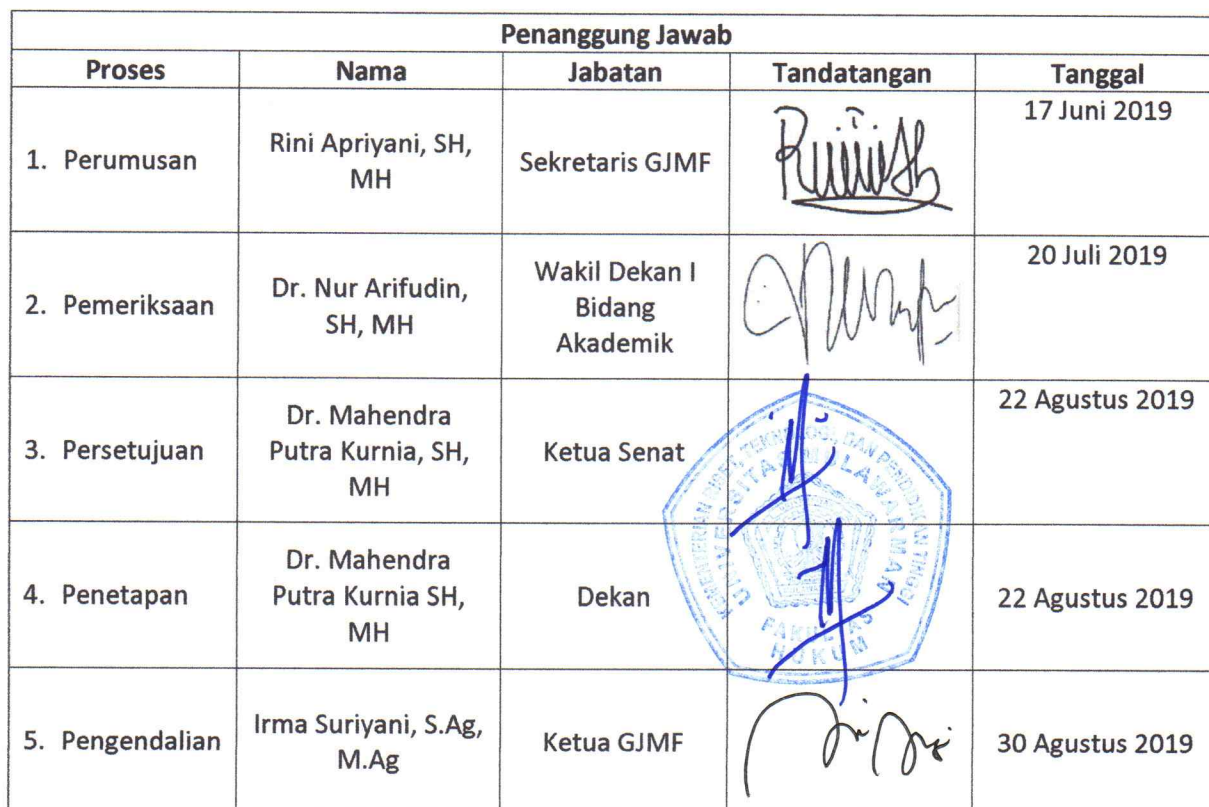 Penanggung Jawab
Proses Nama Jabatan Tandatangan Tanggal
1. Perumusan
Rini Apriyani, SH,
MH
Sekretaris GJMF
17 Juni 2019
2. Pemeriksaan
Dr. Nur Arifudin,
SH, MH
Wakil Dekan I
Bidang
Akademik
20 Juli 2019
3. Persetujuan
Dr. Mahendra
Putra Kurnia, SH,
MH
Ketua Senat
22 Agustus 2019
4. Penetapan
Dr. Mahendra
Putra Kurnia SH,
MH
Dekan
22 Agustus 2019
UNIVERSITAS MULAWARMAN
FAKULTAS
HUKUM
5. Pengendalian
Irma Suriyani, S.Ag,
M.Ag
Ketua GJMF
30 Agustus 2019